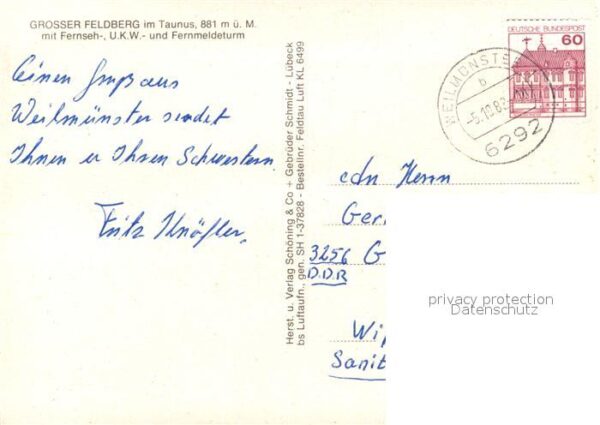 GROSSER FELDBERG im Taunus, 881 m ü. M.
mit Fernseh-, U.K.W.- und Fernmeldeturm
Einen Gruß aus
Weilmünster sendet
Ihnen u Ihren Schwestern
Fritz
Herst. u. Verlag Schöning & Co + Gebrüder Schmidt - Lübeck
bs Luftaufn., gen. SH 1-37828 - Bestellnr. Feldtau Luft KL 6499
DEUTSCHE BUNDESPOST
60
WEILMÜNSTER
b
6292
An Herrn
Ger
3256 G
DDR
Wip
Sanit
privacy protection
Datenschutz